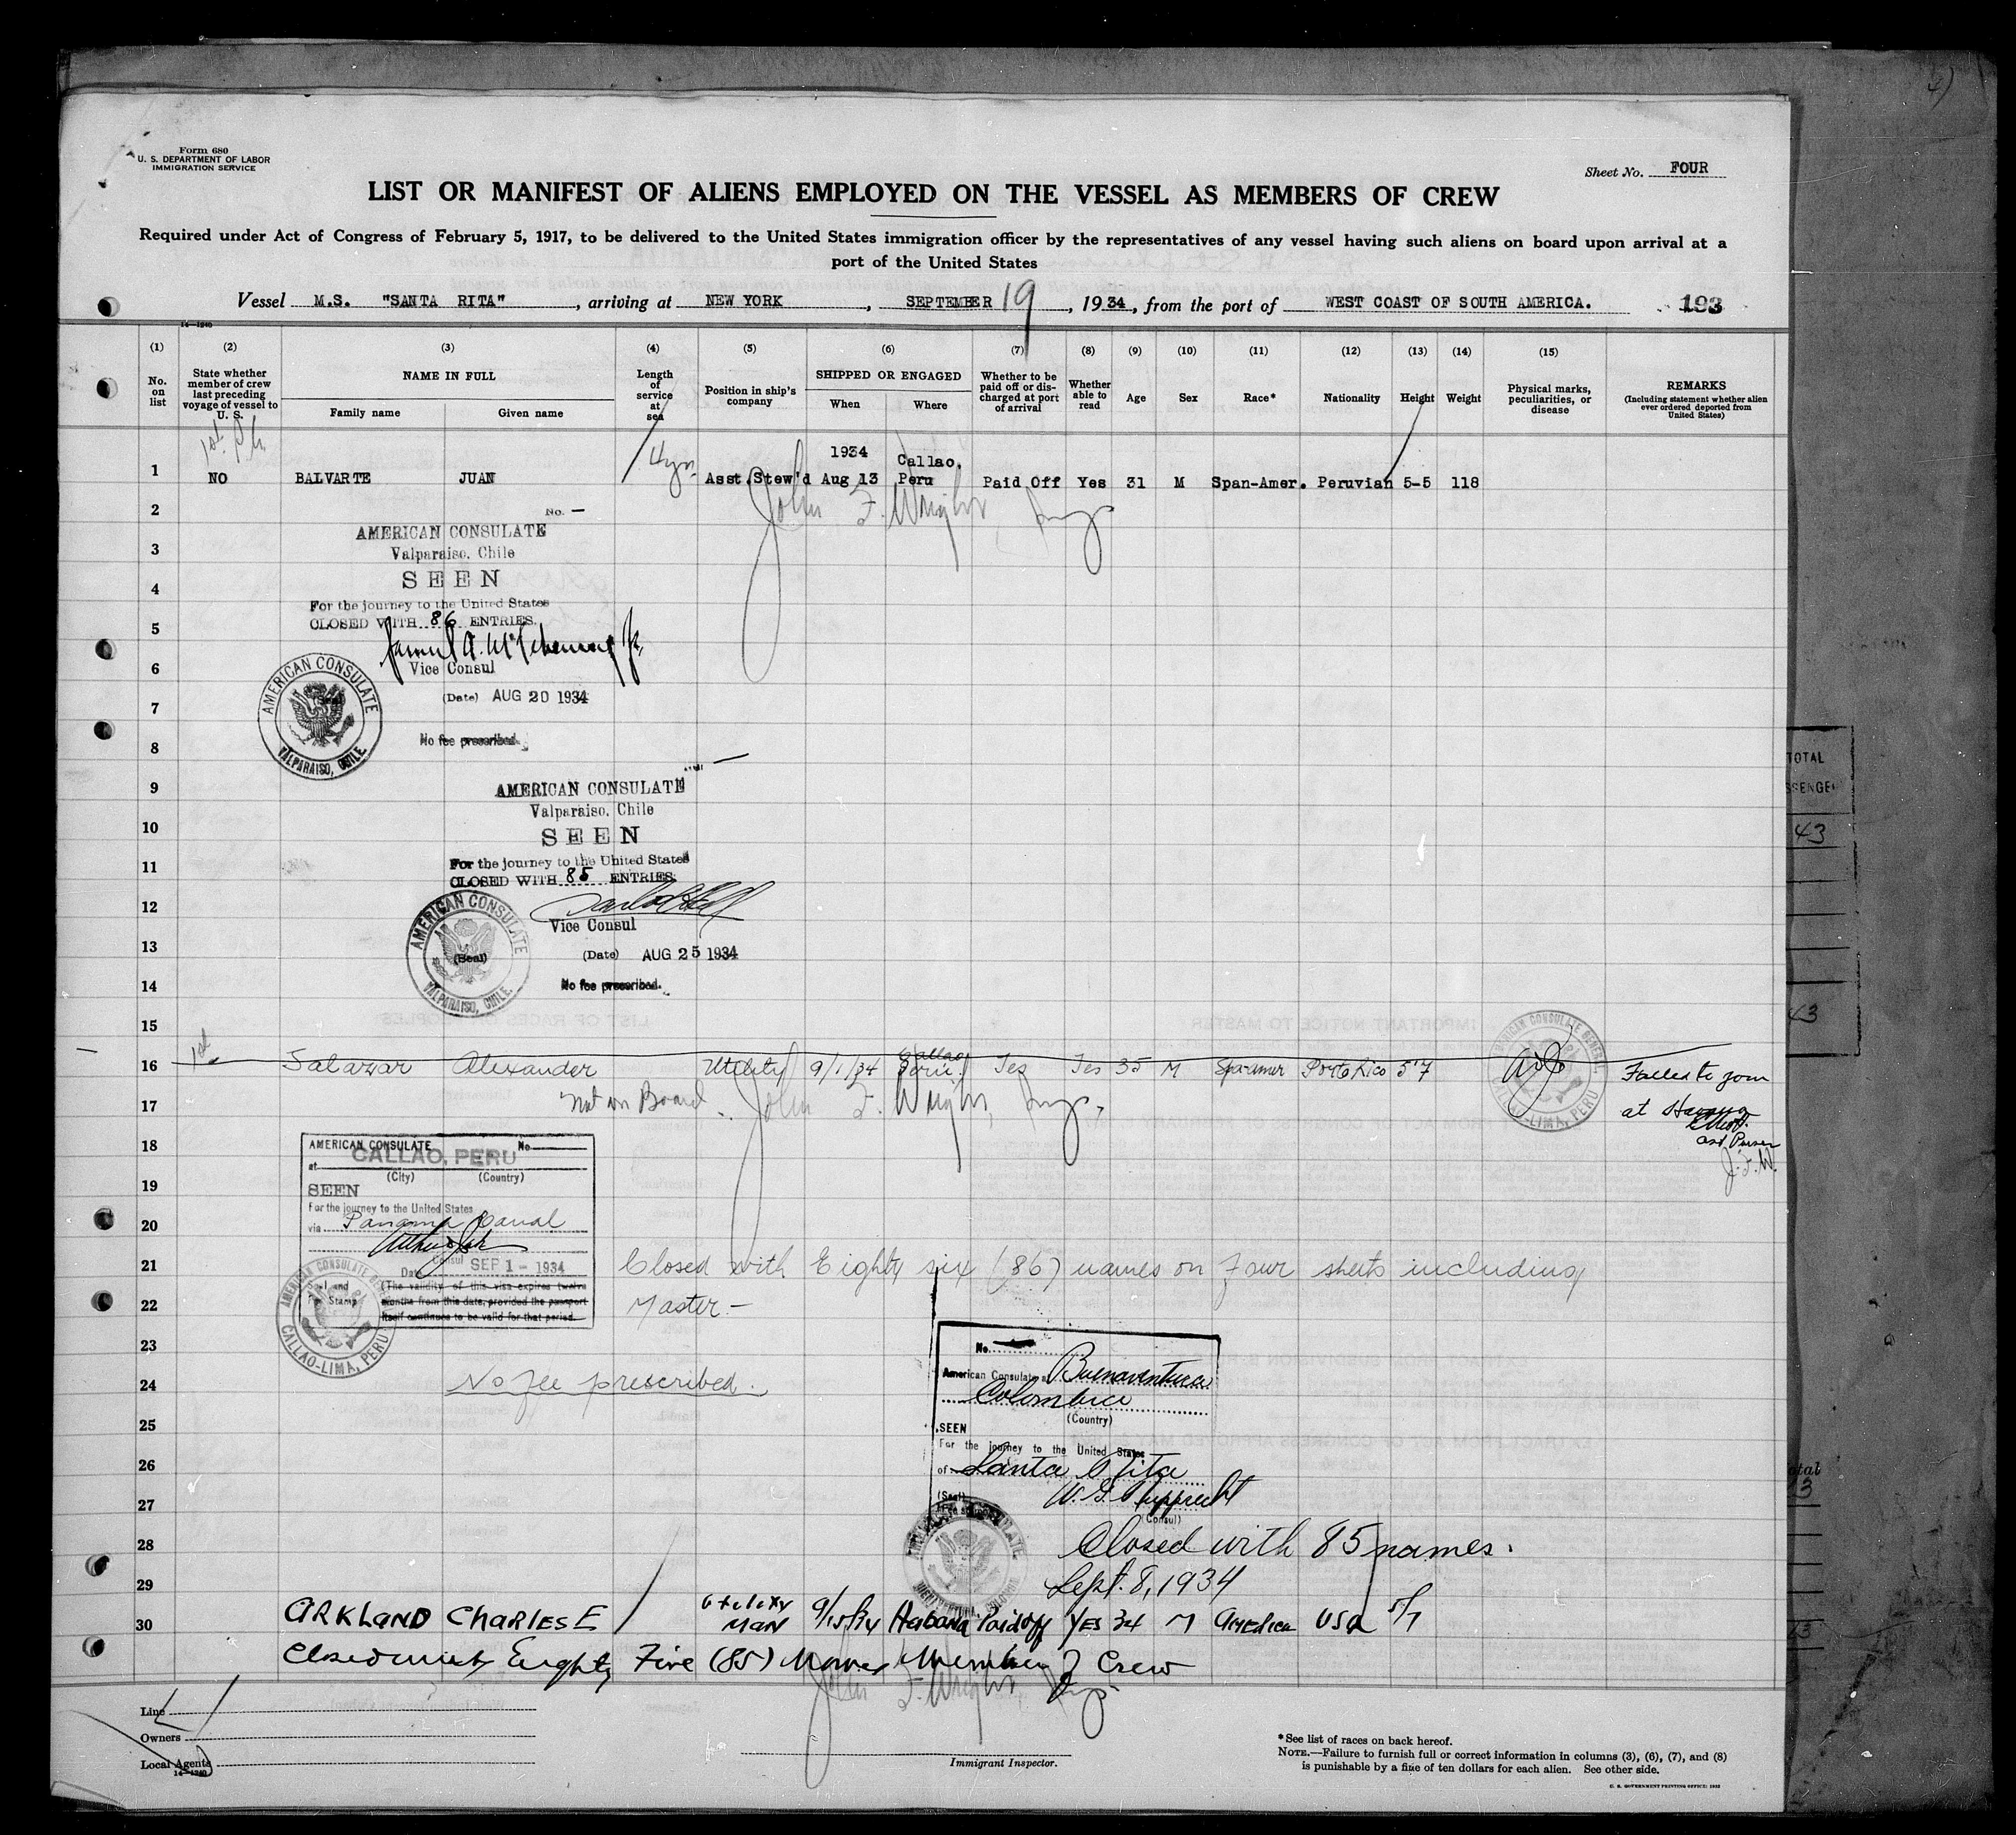 4)
Form 680
U. S. DEPARTMENT OF LABOR
IMMIGRATION SERVICE
Sheet No. FOUR
LIST OR MANIFEST OF ALIENS EMPLOYED ON THE VESSEL AS MEMBERS OF CREW
Required under Act of Congress of February 5, 1917, to be delivered to the United States immigration officer by the representatives of any vessel having such aliens on board upon arrival at a
port of the United States
Vessel M.S. "SANTA RITA", arriving at NEW YORK, SEPTEMBER 19, 1934, from the port of WEST COAST OF SOUTH AMERICA. 193
14—1240
(1) (2) (3) (4) (5) (6) (7) (8) (9) (10) (11) (12) (13) (14) (15)
No. on list
State whether member of crew last preceding voyage of vessel to U. S.
NAME IN FULL
Family name Given name
Length of service at sea
Position in ship's company
SHIPPED OR ENGAGED
When Where
Whether to be paid off or discharged at port of arrival
Whether able to read
Age Sex Race* Nationality Height Weight
Physical marks, peculiarities, or disease
REMARKS
(Including statement whether alien ever ordered deported from United States)
1st
1 NO BALVARTE JUAN 4yr. Asst.Stew'd 1934 Aug 13 Callao, Peru Paid Off Yes 31 M Span-Amer. Peruvian 5-5 118
2 John F. Wright, Insp.
No. —
3 AMERICAN CONSULATE
Valparaiso, Chile
4 SEEN
For the journey to the United States
5 CLOSED WITH 86 ENTRIES.
6 Vice Consul
AMERICAN CONSULATE VALPARAISO, CHILE.
7 (Date) AUG 20 1934
8 No fee prescribed.
9 AMERICAN CONSULATE
Valparaiso, Chile
10 SEEN
11 For the journey to the United States
CLOSED WITH 85 ENTRIES.
12 Vice Consul
AMERICAN CONSULATE (Seal) VALPARAISO, CHILE.
13 (Date) AUG 25 1934
14 No fee prescribed.
15
1st
16 Salazar Alexander Utility 9/1/34 Callao Peru. Yes Yes 35 M Spa-amer Porto Rico 5'7 Failed to join
AMERICAN CONSULATE GENERAL CALLAO-LIMA, PERU
17 Not on Board. John F. Wright, Insp. at Havana
asst Purser
J.F.W.
18 AMERICAN CONSULATE No.
at CALLAO, PERU
(City) (Country)
19 SEEN
For the journey to the United States
20 via Panama Canal
21 Consul
Date SEP 1 - 1934
Closed with Eighty six (86) names on four sheets including
Seal and Fee Stamp
(The validity of this visa expires twelve
22 months from this date, provided the passport
itself continues to be valid for that period.
Master —
AMERICAN CONSULATE GENERAL CALLAO-LIMA, PERU
23 No.
24 No fee prescribed.
American Consulate at Buenaventura
Colombia
(Country)
25 SEEN
For the journey to the United States
26 of Santa Rita
27 (Seal)
(Consul)
28 Closed with 85 names.
29 Sept. 8, 1934
30 ARKLAND CHARLES E Utility MAN 9/15/34 Habana Paid off YES 34 M America USA 5/7
Closed with Eighty Five (85) Names Members of Crew
John F. Wright Insp.
Line
Owners
Local Agents
14—1240
Immigrant Inspector.
*See list of races on back hereof.
NOTE.—Failure to furnish full or correct information in columns (3), (6), (7), and (8)
is punishable by a fine of ten dollars for each alien. See other side.
U. S. GOVERNMENT PRINTING OFFICE: 1932
TOTAL
43
43